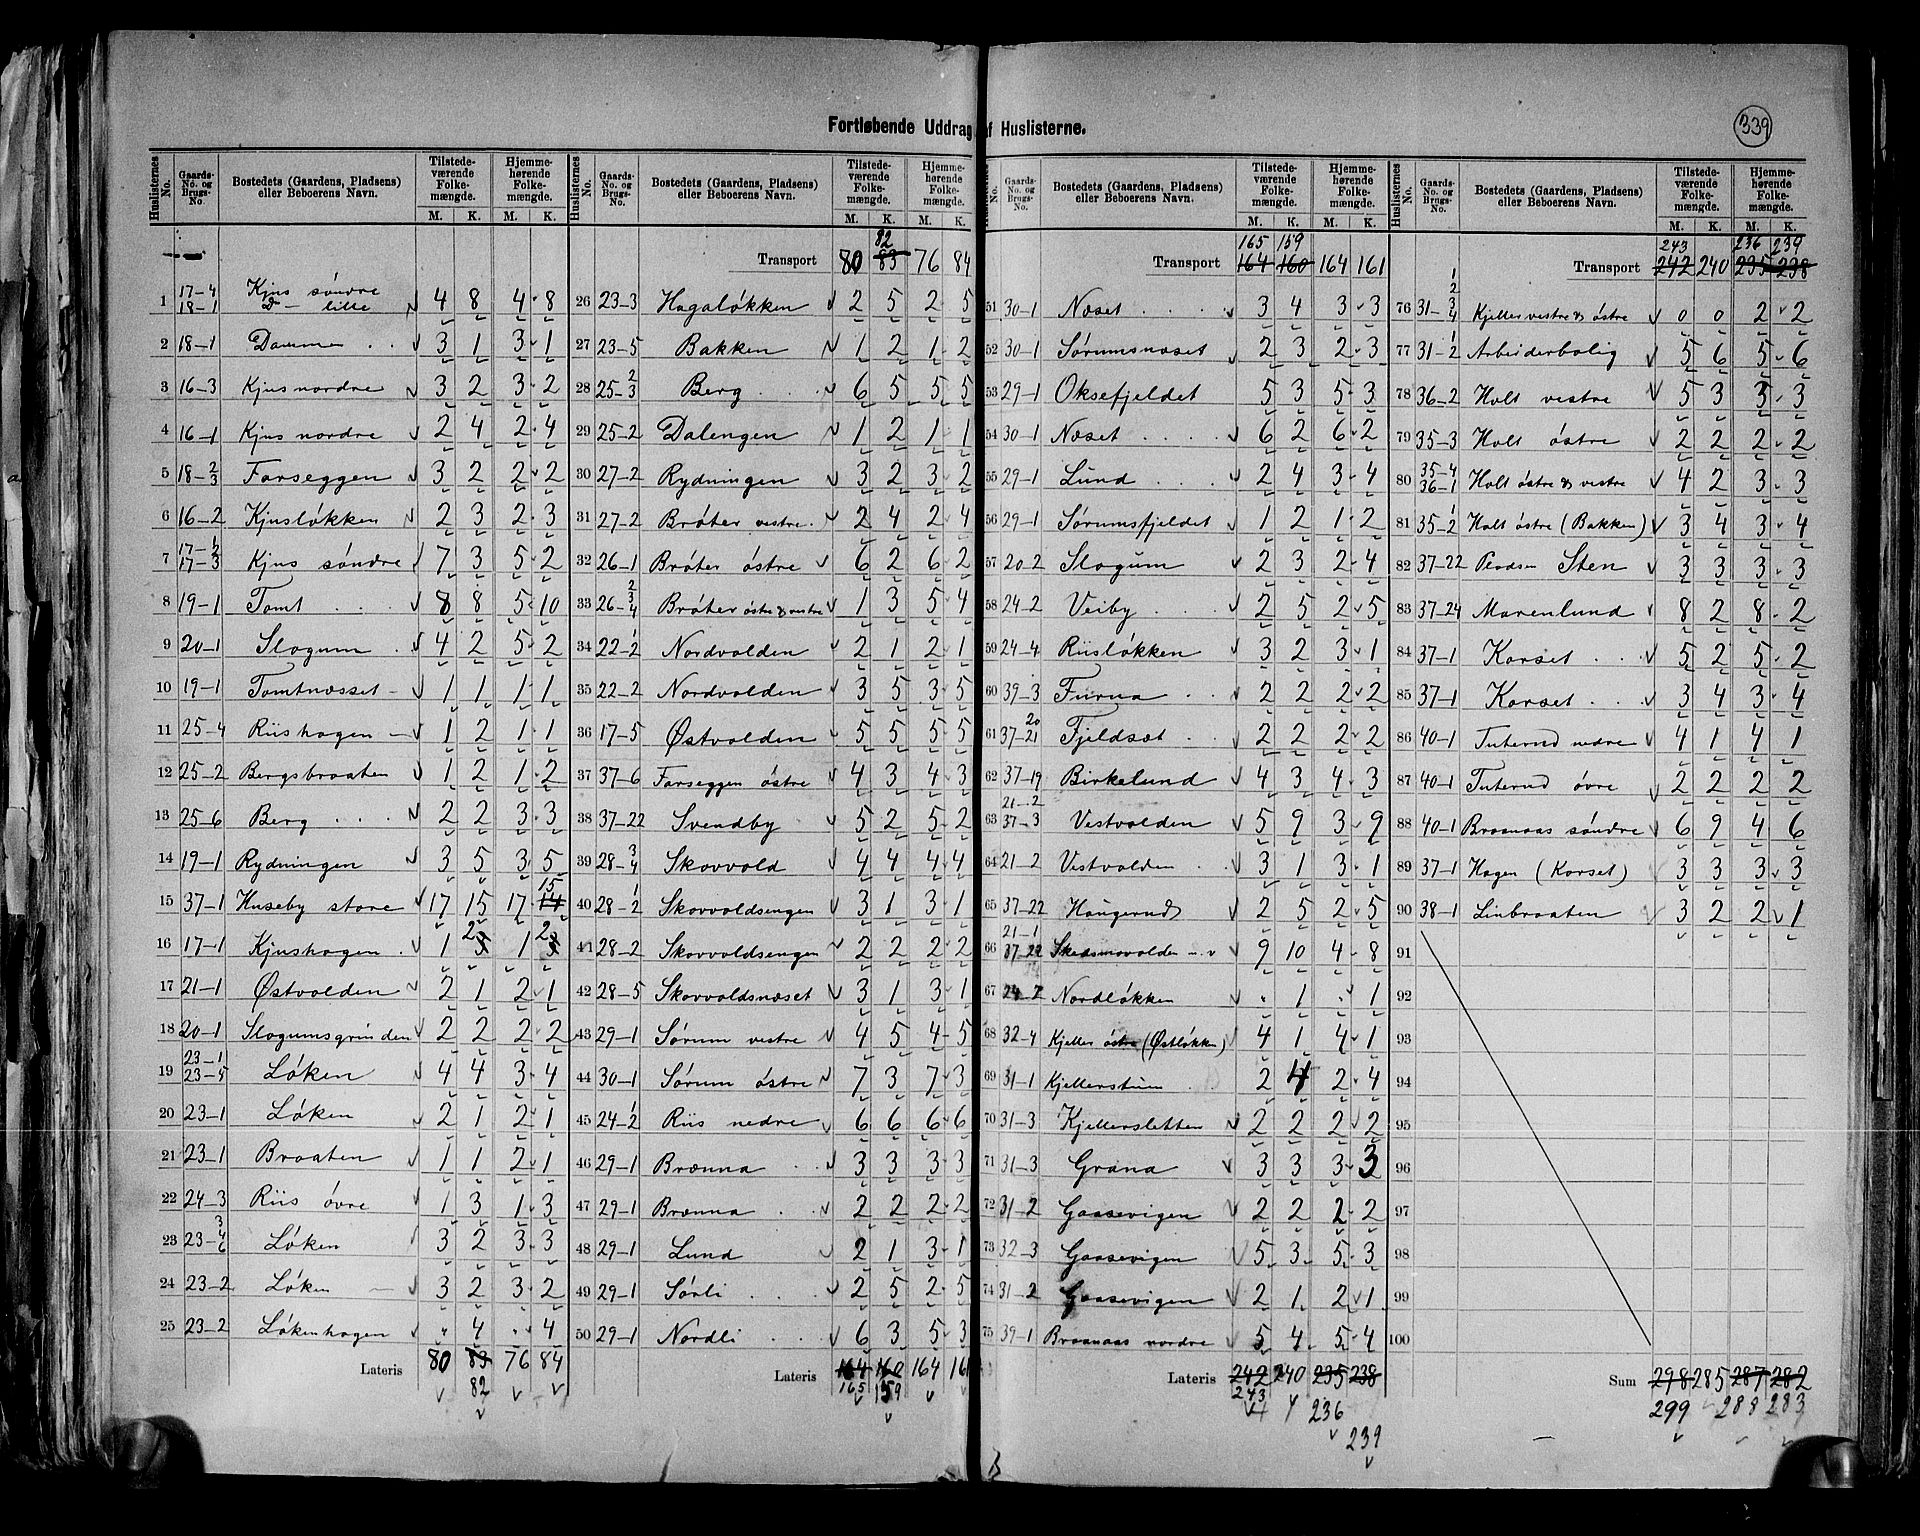 339
Fortløbende Uddrag af Huslisterne.
Huslisternes No. | Gaards-No. og Brugs-No. | Bostedets (Gaardens, Pladsens) eller Beboerens Navn. | Tilstedeværende Folkemængde. M. K. | Hjemmehørende Folkemængde. M. K.
1 17-4 18-1 Kjus søndre D— lille 4 8 4 8
2 18-1 Dammen 3 1 3 1
3 16-3 Kjus nordre 3 2 3 2
4 16-1 Kjus nordre 2 4 2 4
5 18-2/3 Farseggen 3 2 2 2
6 16-2 Kjusløkken 2 3 2 3
7 17-1/2 17-3 Kjus søndre 7 3 5 2
8 19-1 Tomt 8 8 5 10
9 20-1 Slogum 4 2 5 2
10 19-1 Tomtnæsset 1 1 1 1
11 25-4 Riishagen 1 2 1 1
12 25-2 Bergsbraaten 1 2 1 2
13 25-6 Berg 2 2 3 3
14 19-1 Rydningen 3 5 3 5
15 37-1 Huseby store 17 15 17 14 15
16 17-1 Kjushagen 1 3 2 1 3 2
17 21-1 Østvolden 2 1 2 1
18 20-1 Slogumsgrinden 2 2 2 2
19 23-1 23-5 Løken 4 4 3 4
20 23-1 Løken 2 1 2 1
21 23-1 Braaten 1 1 2 1
22 24-3 Riis øvre 1 3 1 3
23 23-3/4/6 Løken 3 2 3 3
24 23-2 Løken 3 2 3 2
25 23-2 Løkenhagen " 4 " 4
Lateris 80 83 76 84
82
82
Transport 80 83 76 84
26 23-3 Hagaløkken 2 5 2 5
27 23-5 Bakken 1 2 1 2
28 25-2/3 Berg 6 5 5 5
29 25-2 Dalengen 1 2 1 1
30 27-2 Rydningen 3 2 3 2
31 27-2 Brøter vestre 2 4 2 4
32 26-1 Brøter østre 6 2 6 2
33 26-2/3/4 Brøter østre & vestre 1 3 5 4
34 22-1/2 Nordvolden 2 1 2 1
35 22-2 Nordvolden 3 5 3 5
36 17-5 Østvolden 5 5 5 5
37 37-6 Farseggen østre 4 3 4 3
38 37-22 Svendby 5 2 5 2
39 28-3/4 Skovvold 4 4 4 4
40 28-1/2 Skovvoldsengen 3 1 3 1
41 28-2 Skovvoldsengen 2 2 2 2
42 28-5 Skovvoldsnæset 3 1 3 1
43 29-1 Sørum vestre 4 5 4 5
44 30-1 Sørum østre 7 3 7 3
45 24-1/2 Riis nedre 6 6 6 6
46 29-1 Brænna 3 3 3 3
47 29-1 Brænna 2 2 2 2
48 29-1 Lund 2 1 3 1
49 29-1 Sørli 2 5 2 5
50 29-1 Nordli 6 3 5 3
Lateris 164 160 164 161
165 159
165 159
Transport 164 160 164 161
51 30-1 Næset 3 4 3 3
52 30-1 Sørumsnæset 2 3 2 3
53 29-1 Oksefjeldet 5 3 5 3
54 30-1 Næset 6 2 6 2
55 29-1 Lund 2 4 3 4
56 29-1 Sørumsfjeldet 1 2 1 2
57 20-2 Slogum 2 3 2 4
58 24-2 Veiby 2 5 2 5
59 24-4 Riisløkken 3 2 3 1
60 39-3 Furua 2 2 2 2
61 37-20/21 Fjeldsæt 2 2 2 2
62 37-19 Birkelund 4 3 4 3
63 21-2 37-3 Vestvolden 5 9 3 9
64 21-2 Vestvolden 3 1 3 1
65 37-22 Haugerud 2 5 2 5
66 21-1 37-22 Skedsmovolden 9 10 4 8
67 24-2 Nordløkken " 1 " 1
68 32-4 Kjeller østre (Østløkken) 4 1 4 1
69 31-1 Kjellerstuen 2 4 2 4
70 31-3 Kjellersletten 2 2 2 2
71 31-3 Grana 3 3 3 3
72 31-2 Gaasevigen 2 2 2 2
73 32-3 Gaasevigen 5 3 5 3
74 31-2 Gaasevigen 2 1 2 1
75 39-1 Braanaas nordre 5 4 5 4
Lateris 242 240 235 238
243 236 239
243 236 239
Transport 242 240 235 238
76 31-1/2/3/4 Kjeller vestre & østre 0 0 2 2
77 31-1/2 Arbeiderbolig 5 6 5 6
78 36-2 Holt vestre 5 3 3 3
79 35-3 Holt østre 2 2 2 2
80 35-4 36-1 Holt østre & vestre 4 2 3 3
81 35-1/2 Holt østre (Bakken) 3 4 3 4
82 37-22 Pladsen Sten 3 3 3 3
83 37-24 Marenlund 8 2 8 2
84 37-1 Korset 5 2 5 2
85 37-1 Korset 3 4 3 4
86 40-1 Tuterud nedre 4 1 4 1
87 40-1 Tuterud øvre 2 2 2 2
88 40-1 Braanaas søndre 6 9 4 6
89 37-1 Hagen (Korset) 3 3 3 3
90 38-1 Linbraaten 3 2 2 1
91
92
93
94
95
96
97
98
99
100
Sum 298 285 287 282
299 288 283